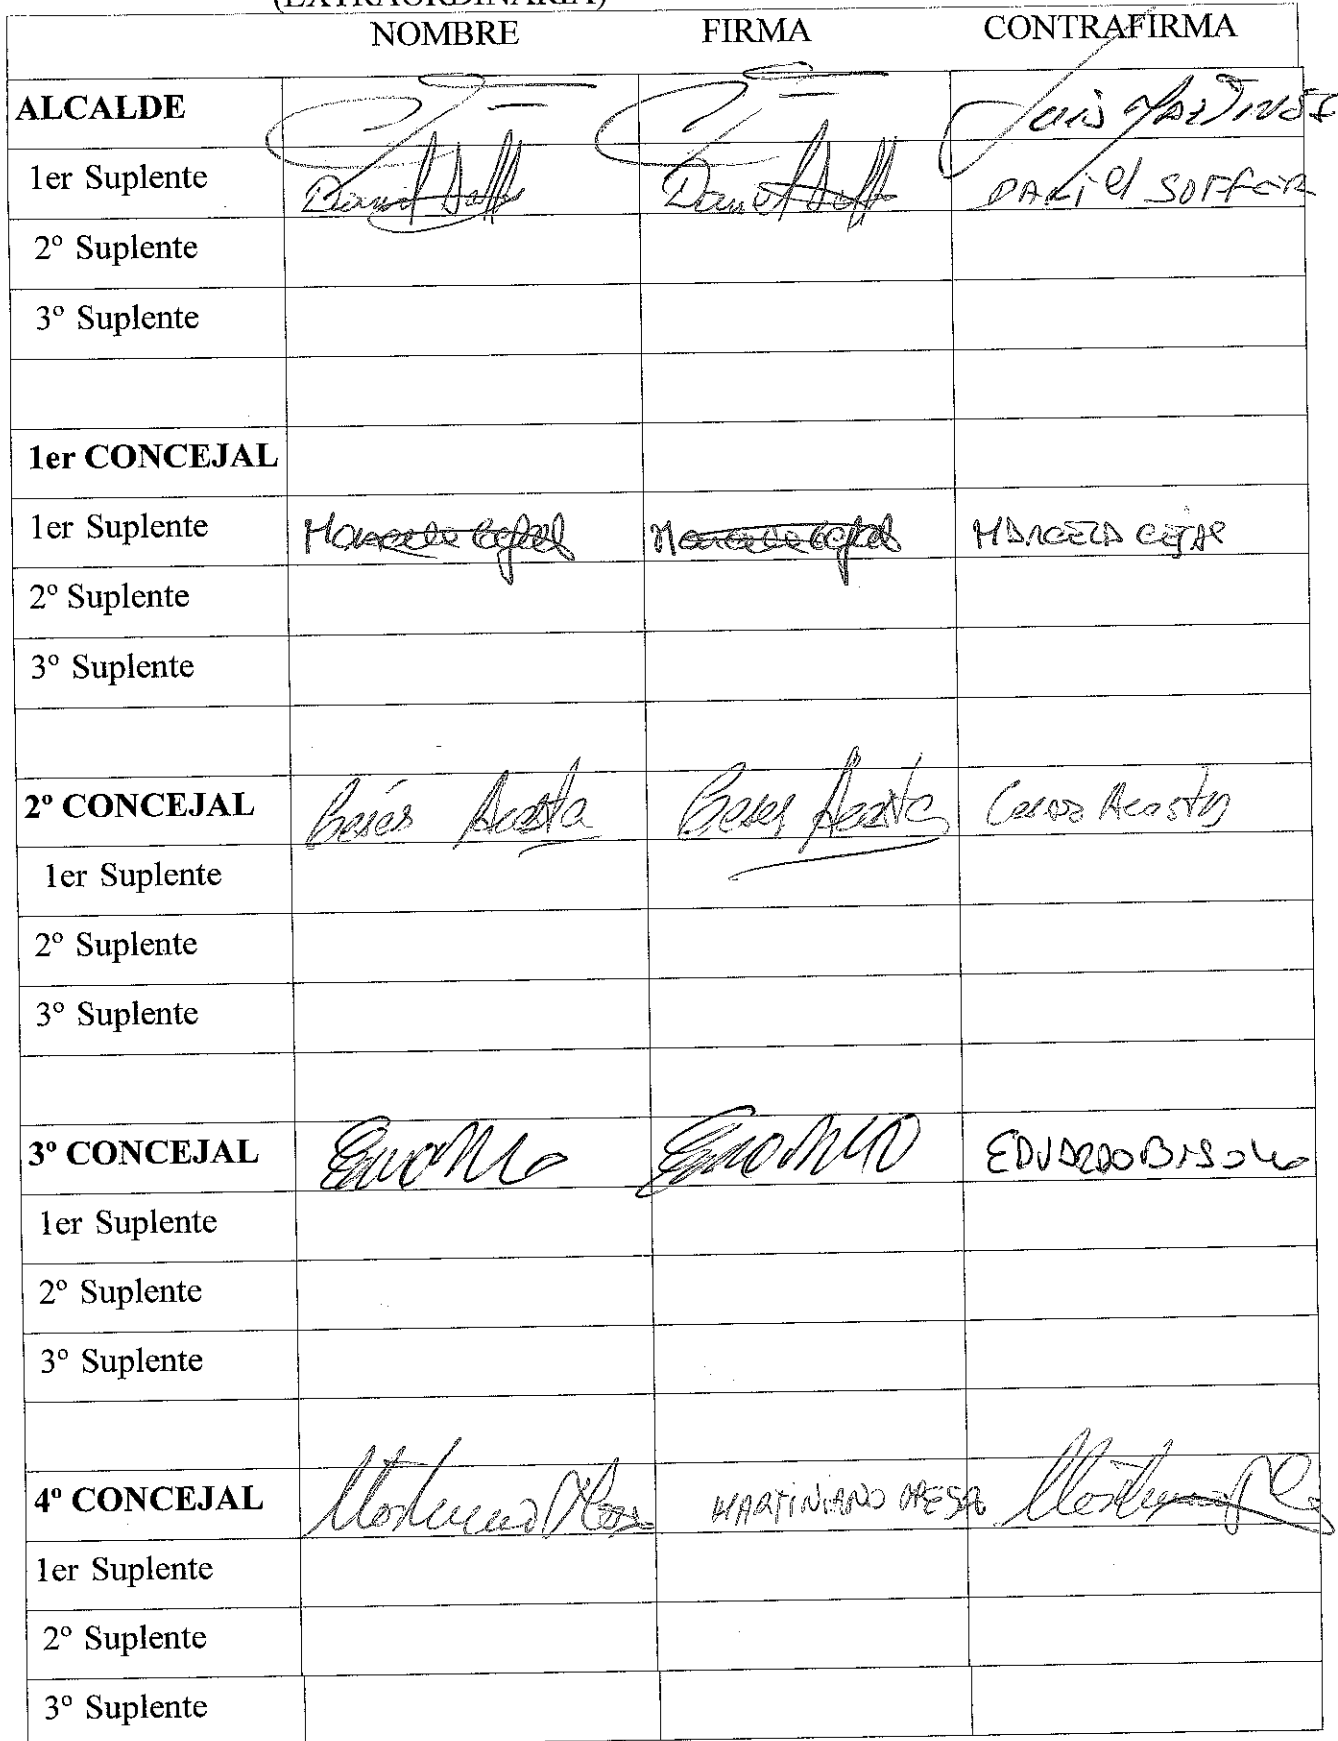 (EXTRAORDINARIA)
NOMBRE FIRMA CONTRAFIRMA
ALCALDE Luis
1er Suplente Daniel Daniel SOFFER
2º Suplente
3º Suplente
1er CONCEJAL
1er Suplente Marcela Cejas Marcela Cejas MARCELA CEJAS
2º Suplente
3º Suplente
2º CONCEJAL Acosta Acosta Acosta
1er Suplente
2º Suplente
3º Suplente
3º CONCEJAL EDUARDO
1er Suplente
2º Suplente
3º Suplente
4º CONCEJAL MARTINIANO
1er Suplente
2º Suplente
3º Suplente